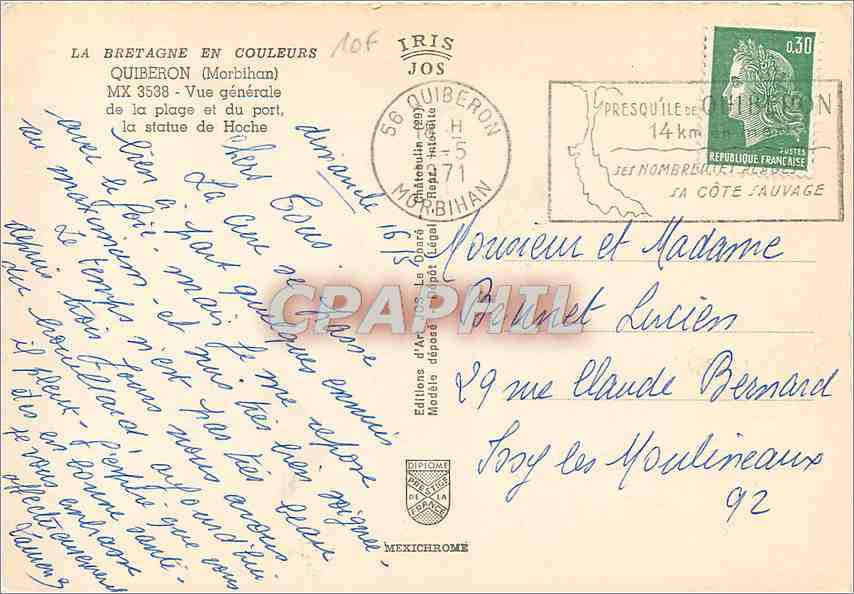 LA BRETAGNE EN COULEURS
QUIBERON (Morbihan)
MX 3538 - Vue générale
de la plage et du port,
la statue de Hoche
10F
IRIS
JOS
56 QUIBERON
18 H
-5
1971
MORBIHAN
PRESQU'ILE DE QUIBERON
14 km en mer
SES NOMBREUSES PLAGES
SA CÔTE SAUVAGE
0,30
POSTES
REPUBLIQUE FRANÇAISE
dimanche 16/5
Chers Tous
La cure se passe
bien à part quelques ennuis
avec le foie mais je me repose
au maximum et suis très bien soignée.
Le temps n'est pas très beau
depuis trois jours nous avons
du brouillard aujourd'hui
il pleut. J'espère que vous
êtes en bonne santé.
je vous embrasse
affectueusement
Editions d'Art JOS Le Doaré Châteaulin (29)
Modèle déposé Dépôt Légal Repr. interdite
CPAPHIL
Monsieur et Madame
Bonnet Lucien
29 rue Claude Bernard
Issy les Moulineaux
92
DIPLOME
PRESTIGE
DE LA
FRANCE
MEXICHROME